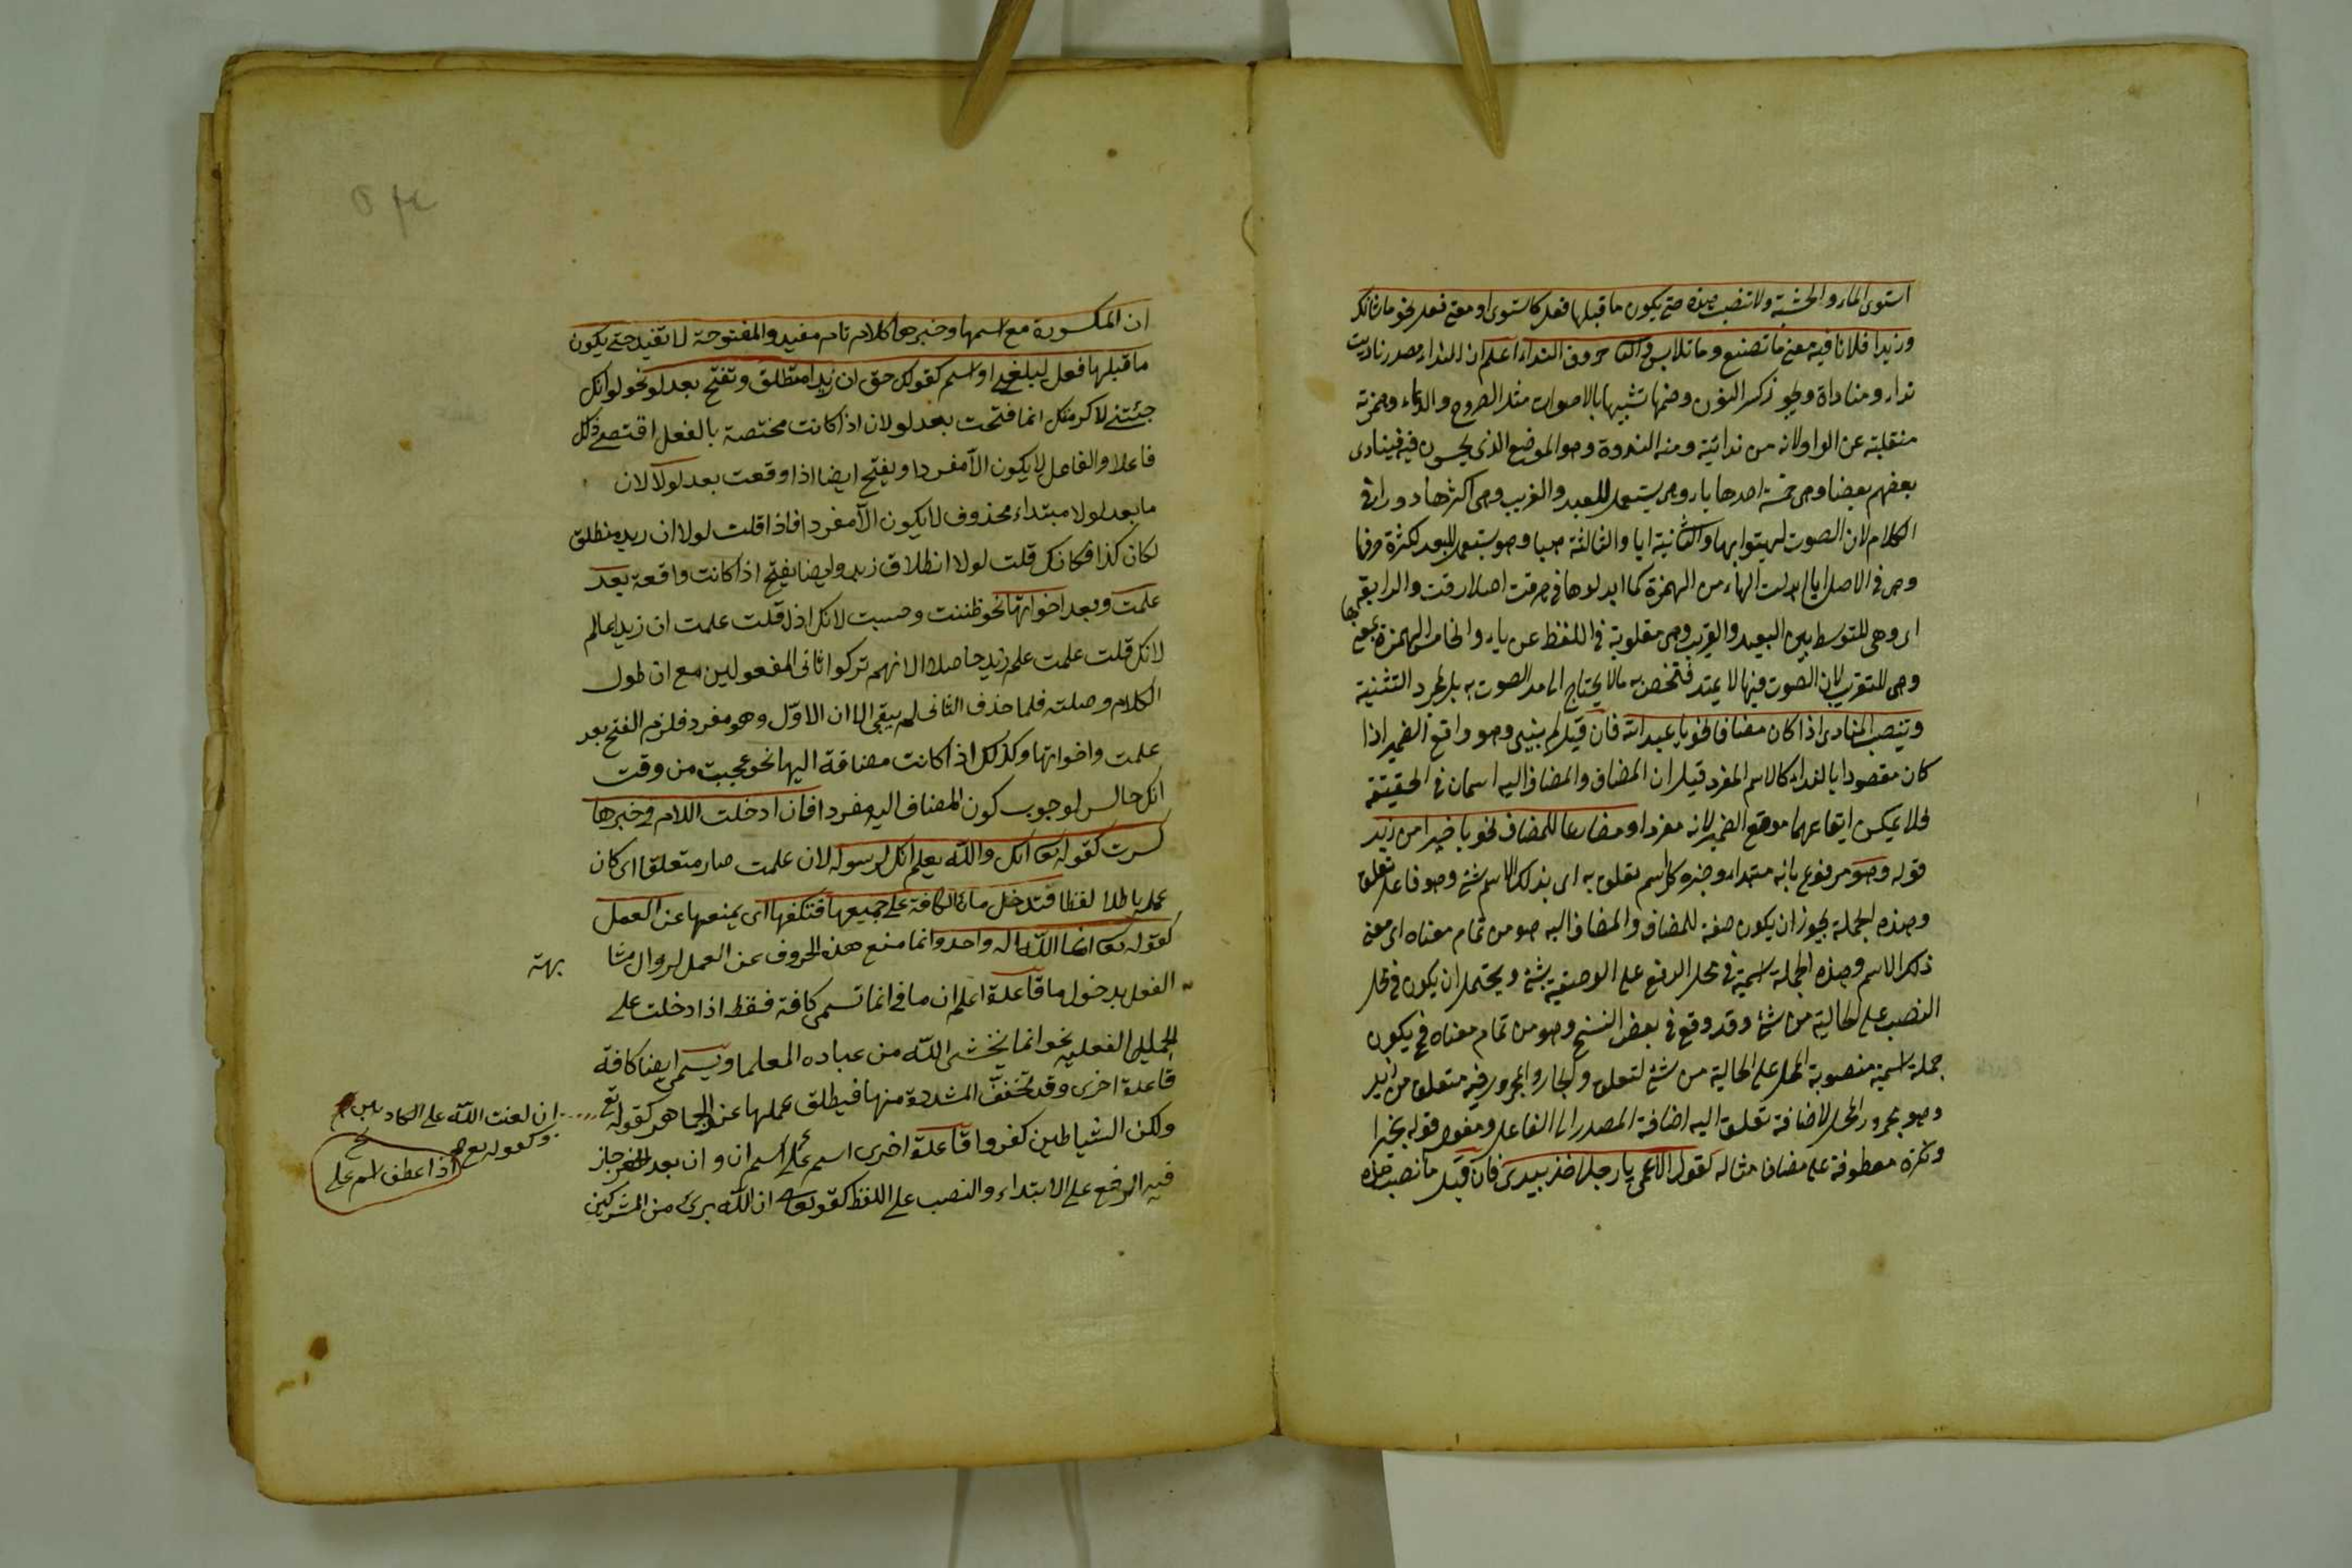 استوى الماء والخشبة ولا تنصب هذه حتى يكون ما قبلها فعل كاستوى او معنى فعل نحو ما شانك
وزيدا فلانا فيه معنى ما تصنع وما تلابس حروف النداء اعلم ان النداء مصدر ناديت
نداء ومناداة ويجوز كسر النون وضمها تشبيها بالاصوات مثل الصروخ والدعاء وهمزته
منقلبة عن الواو لانه من ندائية ومنه الندوة وهو الموضع الذي يجلسون فيه فينادى
بعضهم بعضا وهى خمسة احدها يا وهى يستعمل للبعيد والقريب وهى اكثرها دورا فى
الكلام لان الصوت بها والثانية ايا والثالثة هيا وهو يستعمل للبعيد لكثرة حرفها
وهى فى الاصل ايا ابدلت الهاء من الهمزة كما ابدلوها فى هرقت اصله ارقت والرابعة
اى وهى للتوسط بين البعيد والقريب وهى مقلوبة فى اللفظ عن يا والخامس الهمزة
وهى للتقريب لان الصوت فيها لا يمتد فتختص به ما لا يحتاج الى مد الصوت به بل لمجرد التثنية
وتنصب المنادى اذا كان مضافا نحو يا عبد الله فان قيل لم يبنى وهو واقع الضمير اذا
كان مقصودا بالنداء كالاسم المفرد قيل ان المضاف والمضاف اليه اسمان فى الحقيقة
فلا يمكن ايقاعهما موقع الضمير لانه مفرد او مضارعا للمضاف نحو يا خيرا من زيد
قوله وهو مرفوع بانه مبتداء وخبره كل اسم تعلق به اى بذلك الاسم شئ وهو فاعل تعلق
وهذه الجملة يجوز ان يكون صفة للمضاف والمضاف اليه هو من تمام معناه اى معنى
ذلك الاسم وهذه الجملة اسمية فى محل الرفع على الوصفية بشئ ويحتمل ان يكون فى محل
النصب على الحالية من شئ وقد وقع فى بعض النسخ وهو من تمام معناه فح يكون
جملة اسمية منصوبة المحل على الحالية من شئ لتعلق والجار والمجرور فيه متعلق من زيد
وهو مجرور المحل لاضافة تعلق اليه اضافة المصدر الى الفاعل ومفعوله قوله بخيرا
ونكرة معطوفة على مضاف مثاله كقول الاعمى يا رجلا خذ بيدى فان قيل ما نصب هذه
ان المكسورة مع اسمها وخبرها كلام تام مفيد والمفتوحة لا تفيد حتى يكون
ما قبلها فعل لبلغنى او اسم كقولك حق ان زيدا منطلق وتفتح بعد لو نحو لو انك
جئتنى لاكرمتك انما فتحت بعد لو لان اذا كانت مختصة بالفعل اقتضى ذلك
فاعلا والفاعل لا يكون الا مفردا ويفتح ايضا اذا وقعت بعد لولا لان
ما بعد لولا مبتداء محذوف لا يكون الا مفردا فاذا قلت لولا ان زيد منطلق
لكان كذا فكانك قلت لولا انطلاق زيد وايضا يفتح اذا كانت واقعة بعد
علمت وبعد اخواتها نحو ظننت وحسبت لانك اذا قلت علمت ان زيدا عالم
لانك قلت علمت علم زيد حاصلا الا انهم تركوا ثانى المفعولين مع ان طول
الكلام وصلته فلما حذف الثانى لم يبقى الا ان الاول وهو مفرد فلزم الفتح بعد
علمت واخواتها وكذلك اذا كانت مضافة اليها نحو عجبت من وقت
انك جالس لوجوب كون المضاف اليه مفردا فان ادخلت اللام فى خبرها
كسرت كقوله تعا انك والله يعلم انك لرسوله لان علمت صار متعلقا اى كان
عمله باطلا لفظا فتدخل ما الكافة على جميعها فتكفها اى يمنعها عن العمل
كقوله تعا انما الله اله واحد وانما منع هذه الحروف عن العمل لزوال مشا
بهته
الفعل بدخول ما قاعلة اعلم ان ما فى انما تسمى كافة فقط اذا دخلت على
الجملة الفعلية نحو انما يخشى الله من عباده العلما ويسمى ايضا كافة
قاعلة اخرى وقد تخفف المشددة منها فيطلق عملها عن الجماهر كقوله تع
ان لعنت الله على الكاذبين
وكقوله تع
ولكن الشياطين كفروا قاعلة اخرى اسم على اسم ان وان بعد الخبر جاز
اذا عطف اسم على
فيه الرفع على الابتداء والنصب على اللفظ كقوله تعا ان الله برئ من المشركين